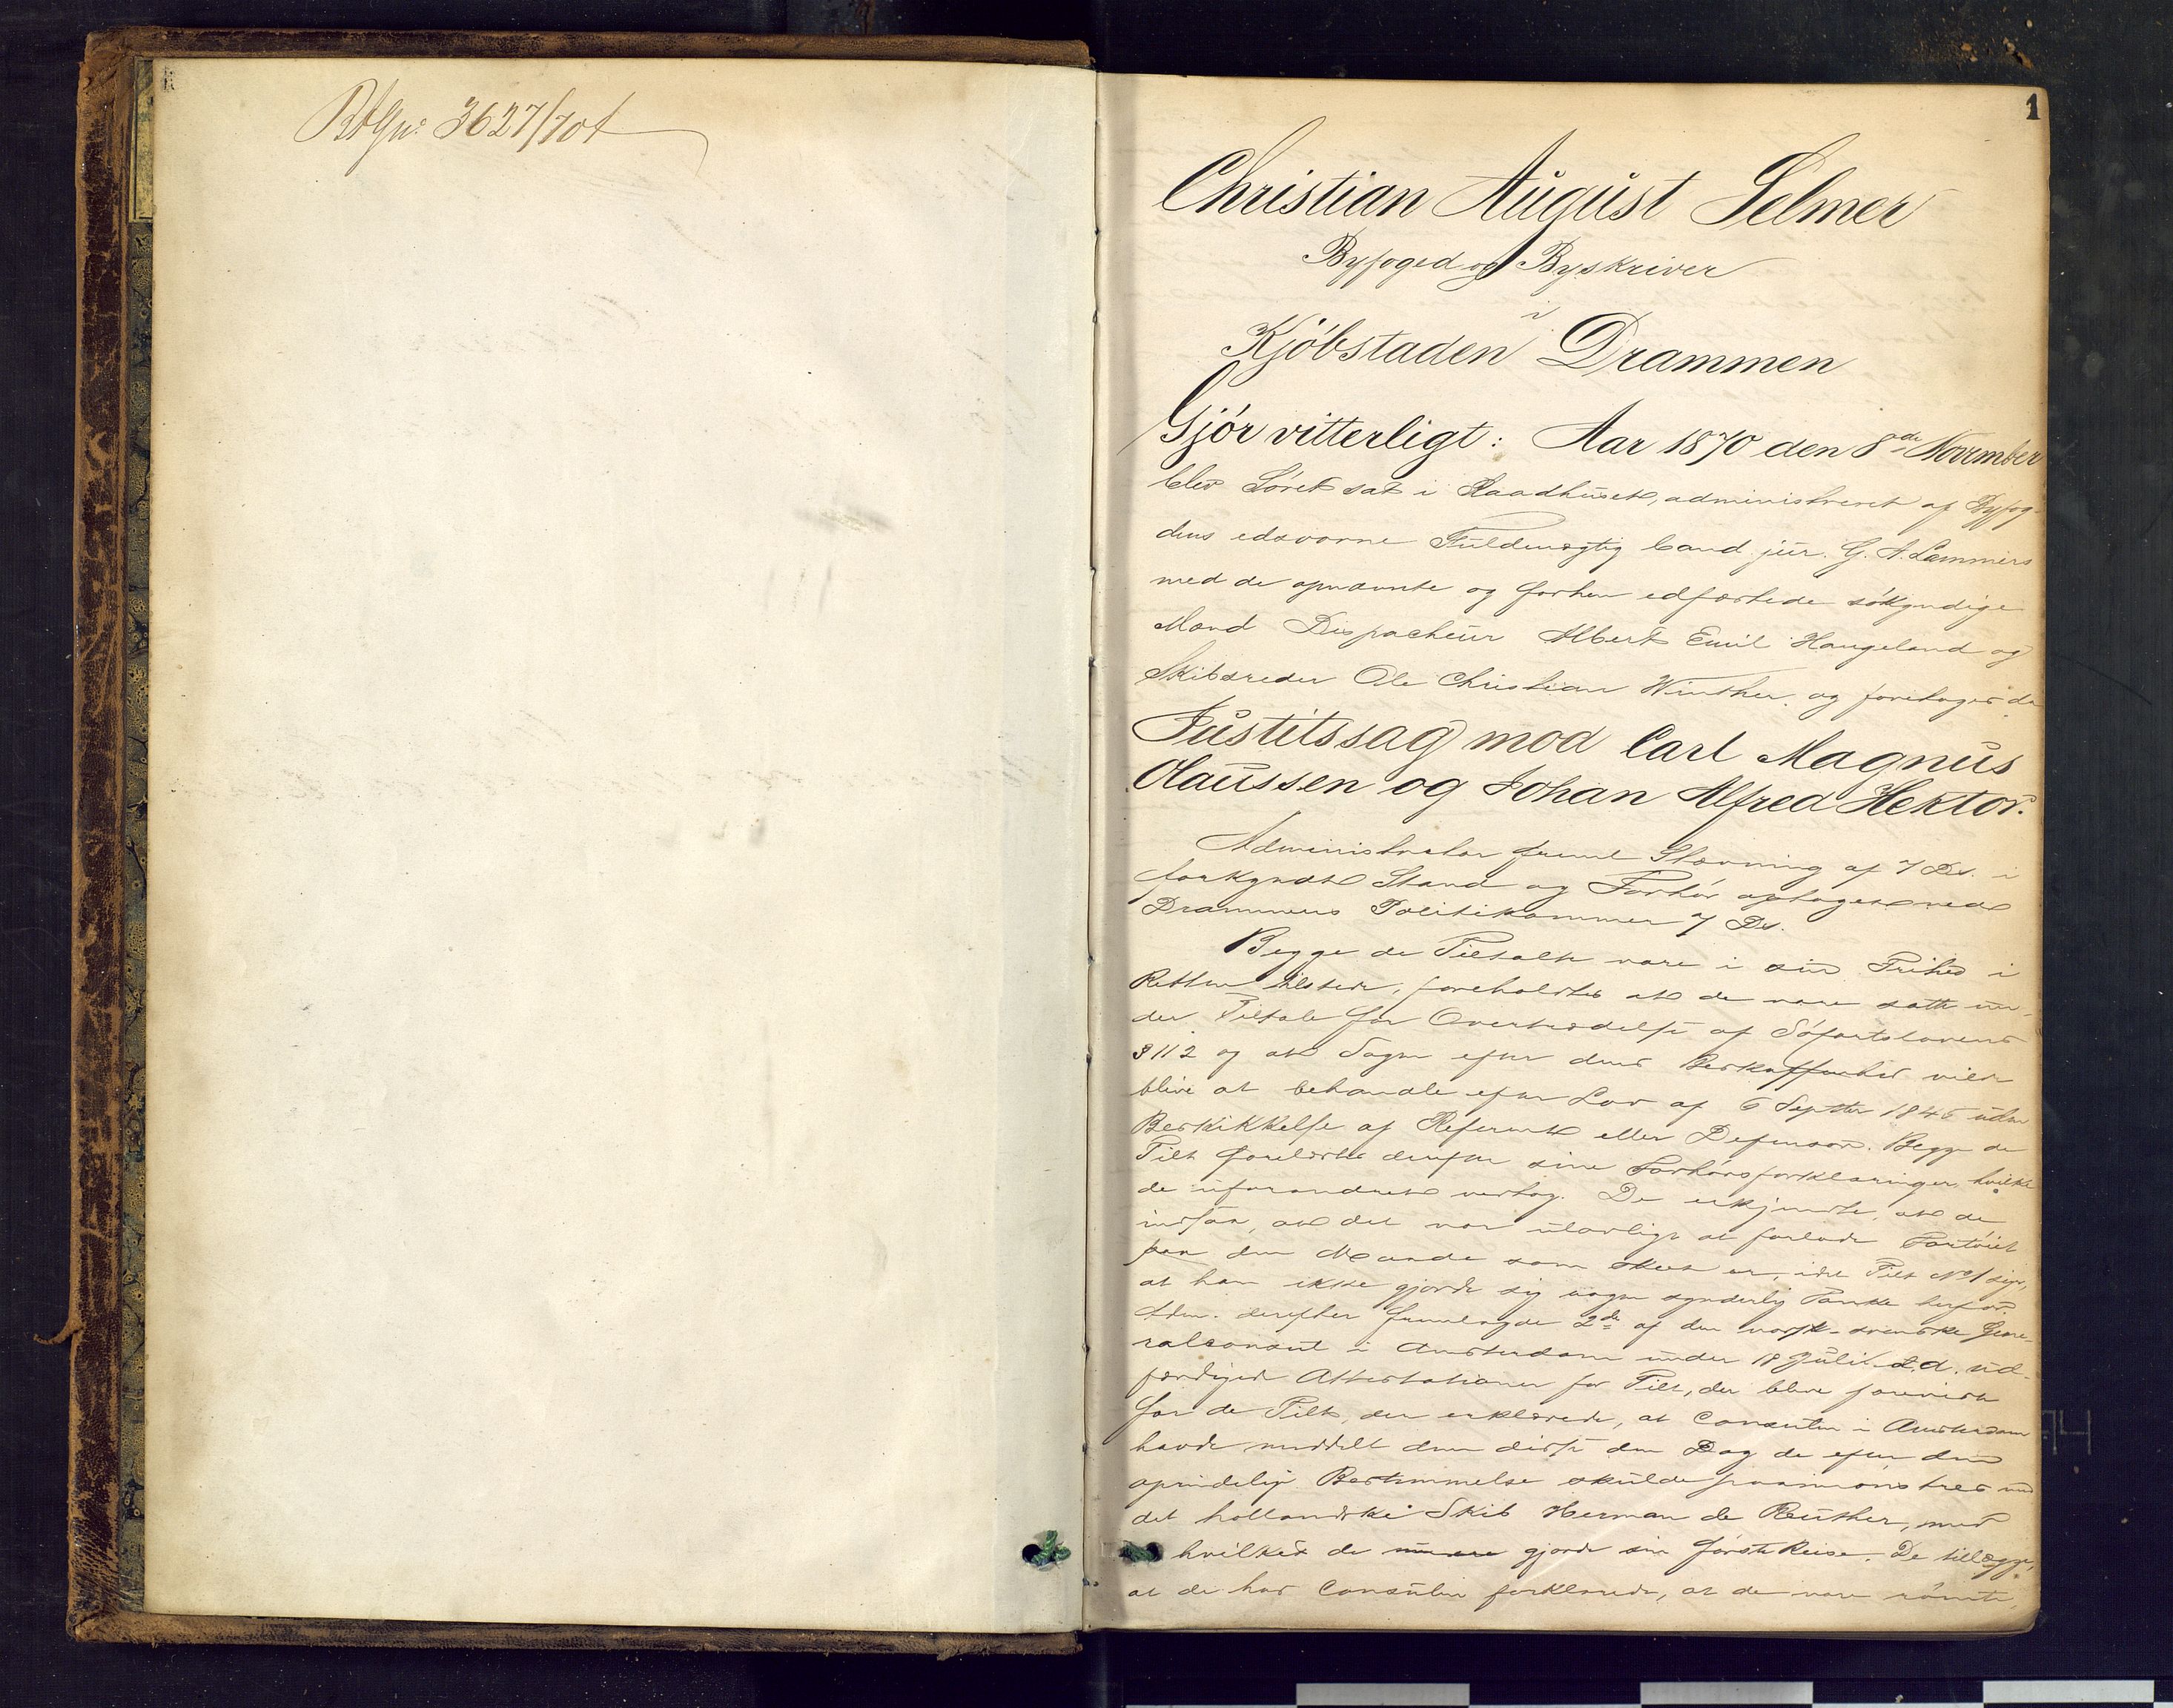 3627/70
1
Christian August Selmer
Byfoged og Byskriver
i
Kjöbstaden Drammen
Gjör vitterligt: Aar 1870 den 8de November
blev Söret sat i Raadhuset, administreret af Byfog-
dens edsvorne Fuldmægtig Cand. jur. G. A. Lammers
med de opnævnte og forhen edfæstede sökyndige
Mænd Dispacheur Albert Emil Haugeland og
Skibsreder Ole Christian Winther, og foretoges da
Justitssag mod Carl Magnus
Olaussen og Johan Alfred Hektor.
Administrator freml. Stævning af 7 Ds. i
forkyndt Stand og Forhör optaget ved
Drammens Politikammer 7 Ds.
Begge de Tiltalte vare i sin Frihed i
Retten tilstede, foreholdtes at de vare satte un-
der Tiltale for Overtrædelse af Söfartslovens
§ 112 og at Sagen efter dens Beskaffenhed vilde
blive at behandle efter Lov af 6 Septbr 1845 uden
Beskikkelse af Referent eller Defensor. Begge de
Tilt. forelæstes derefter sine Forhörsforklaringer, hvilke
de uforandret vedtog. De erkjendte, at de
indsaa, at det var ulovligt at forlade Fartöiet
paa den Maade som skeet er, idet Tilt. No 1 siger,
at han ikke gjorde sig nogen synderlig Tanke herfor.
Adm. derefter fremlagde 2de af den norsk-svenske Gene-
ralconsul i Amsterdam under 18 Juli d.A. ud-
færdigede Attestationer for Tilt., der bleve foreviste
for de Tilt., der erklærede, at Consulen i Amsterdam
havde meddelt dem disse den Dag de efter den
oprindelige Bestemmelse skulde paamönstres med
det hollandske Skib Herman de Ruther, med
hvilket de gjorde sin förste Reise. De tillægge,
at de hos Consulen forklarede, at de vare römte